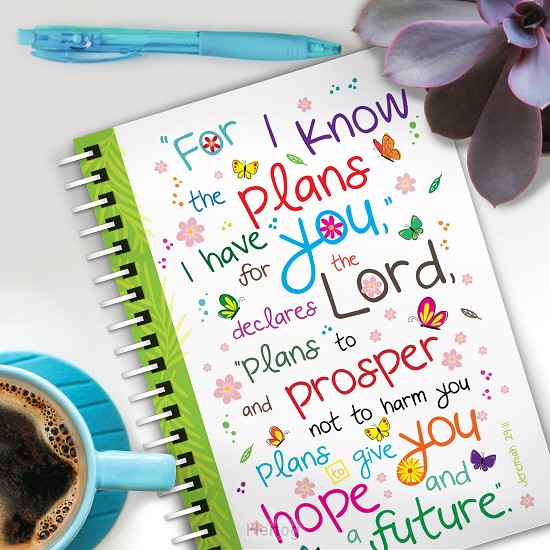 "For I know
the plans
I have for you,"
declares the Lord,
"Plans to
and prosper
not to harm you
plans to give you
hope and
a future".
Jeremiah 29:11